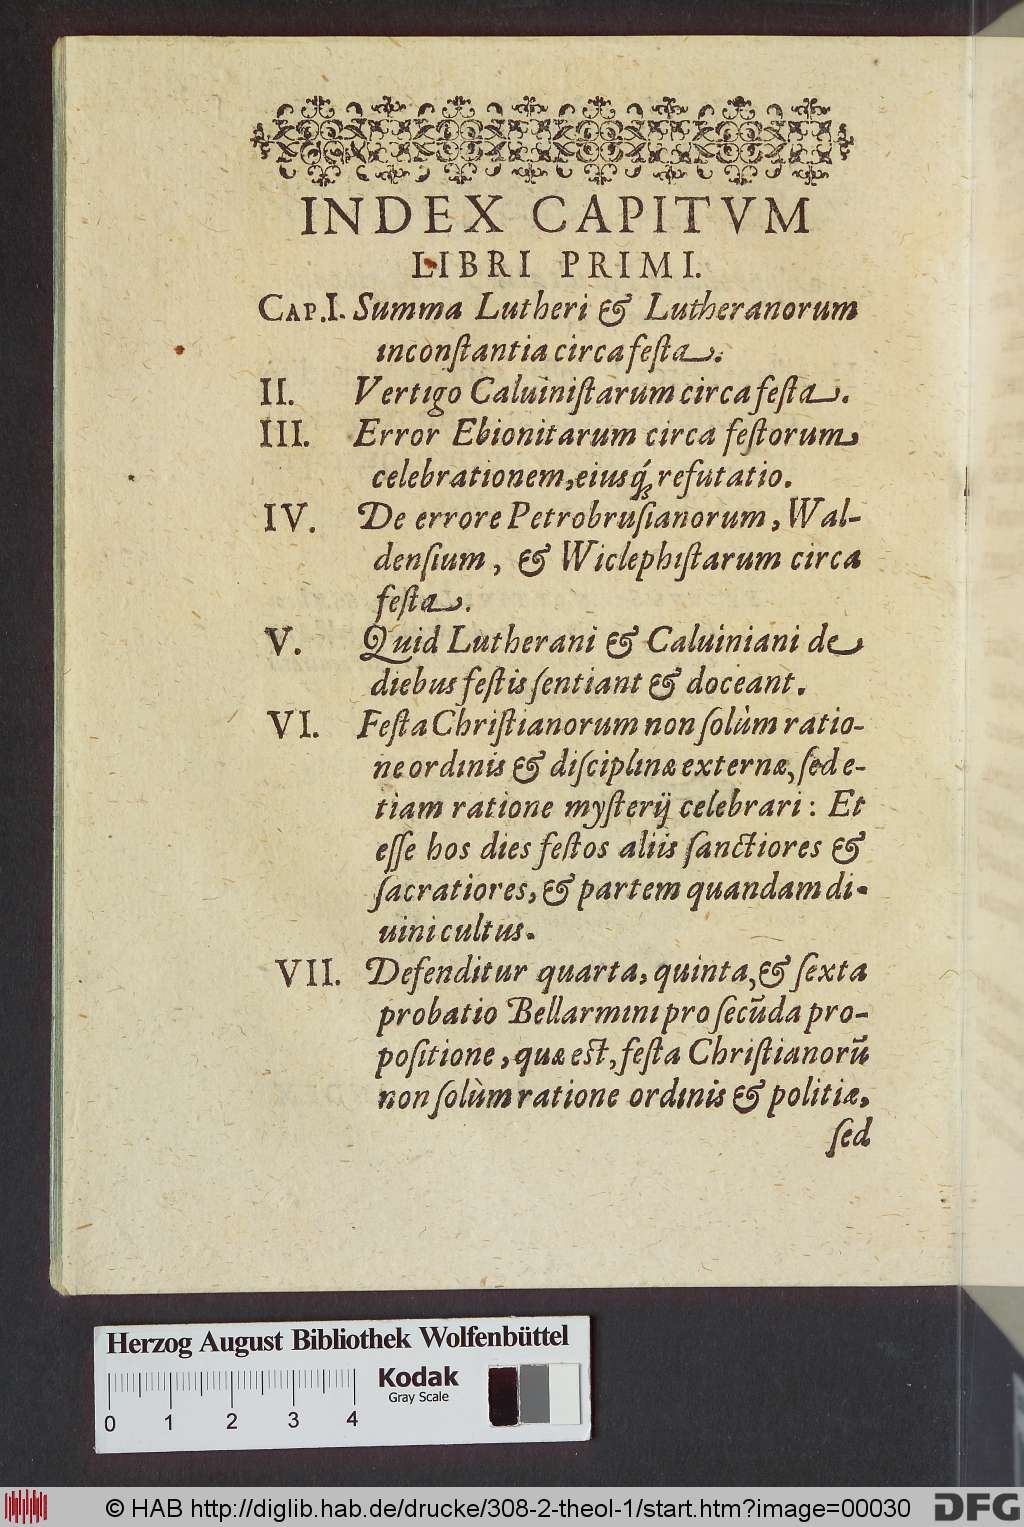 INDEX CAPITVM
LIBRI PRIMI.
CAP.I. Summa Lutheri & Lutheranorum
inconſtantia circa feſta.
II. Vertigo Caluiniſtarum circa feſta.
III. Error Ebionitarum circa feſtorum
celebrationem, eiusq́; refutatio.
IV. De errore Petrobruſianorum, Wal-
denſium, & Wiclephiſtarum circa
feſta.
V. Quid Lutherani & Caluiniani de
diebus feſtis ſentiant & doceant.
VI. Feſta Chriſtianorum non ſolùm ratio-
ne ordinis & diſciplinæ externæ, ſed e-
tiam ratione myſterij celebrari: Et
eſſe hos dies feſtos aliis ſanctiores &
ſacratiores, & partem quandam di-
uini cultus.
VII. Defenditur quarta, quinta, & ſexta
probatio Bellarmini pro ſecũda pro-
poſitione, quæ eſt, feſta Chriſtianorũ
non ſolùm ratione ordinis & politiæ,
ſed
Herzog August Bibliothek Wolfenbüttel
Kodak
Gray Scale
0 1 2 3 4
© HAB http://diglib.hab.de/drucke/308-2-theol-1/start.htm?image=00030
DFG